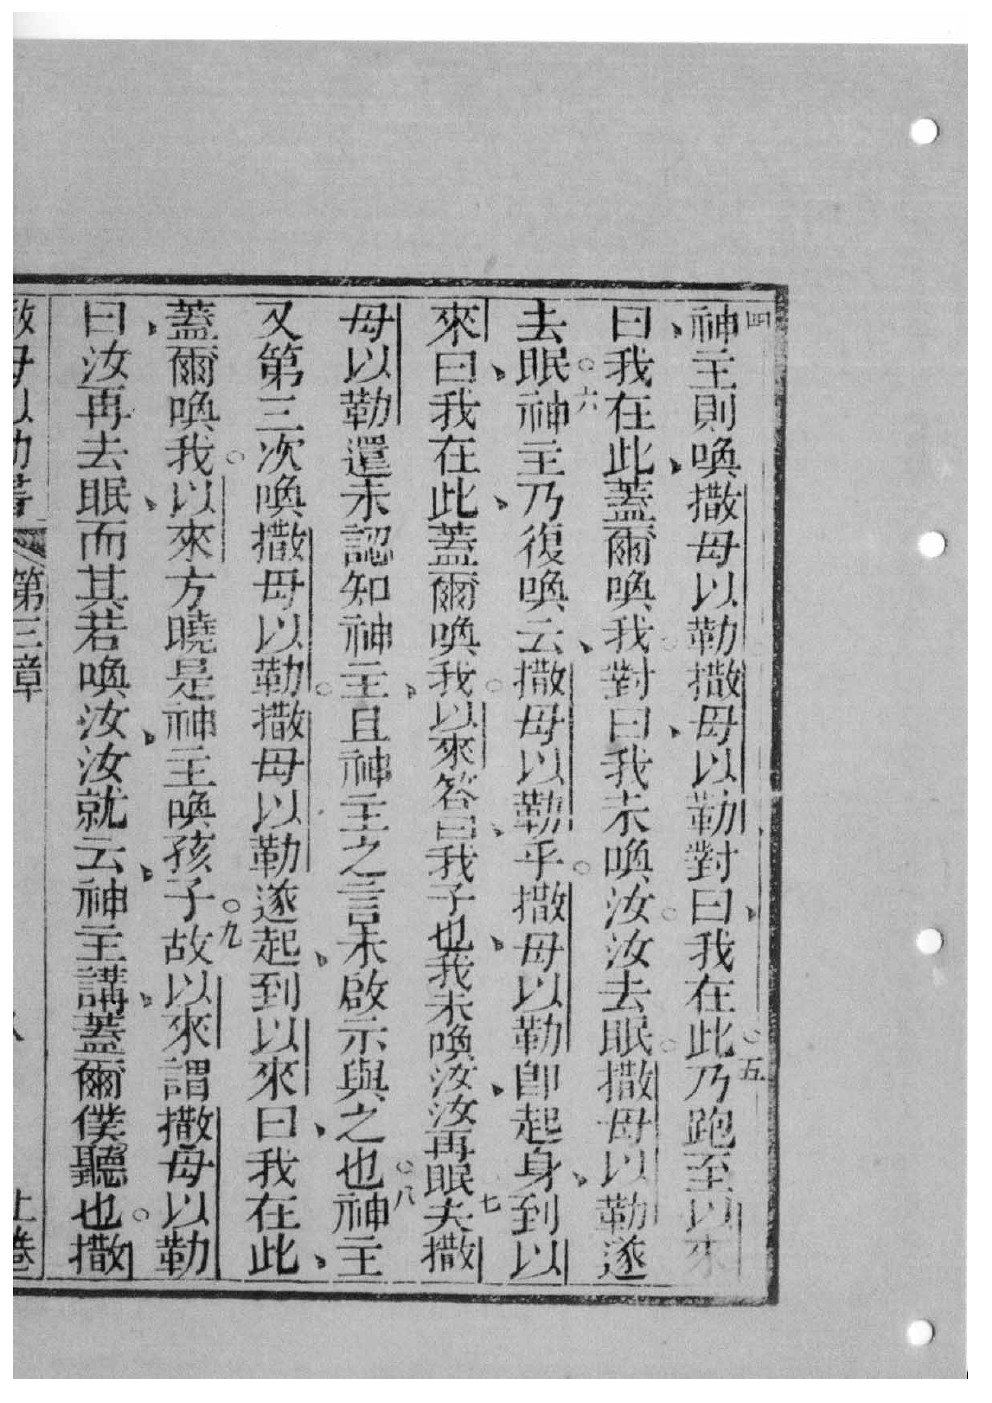 四神主則喚撒母以勒撒母以勒對曰我在此○五乃跑至以來
曰我在此蓋爾喚我○對曰我未喚汝○汝去眠○撒母以勒遂
去眠○六神主乃復喚云撒母以勒乎○撒母以勒卽起身到以
來曰我在此蓋爾喚我○以來答曰我子也我未喚汝汝再眠去○七撒
母以勒還未認知神主且神主之言未啟示與之也○八神主
又第三次喚撒母以勒○撒母以勒遂起到以來曰我在此
蓋爾喚我○以來方曉是神主喚孩子○九故以來謂撒母以勒
曰汝再去眠而其若喚汝汝就云神主講蓋爾僕聽也○撒
母以勒書 第三章 上卷